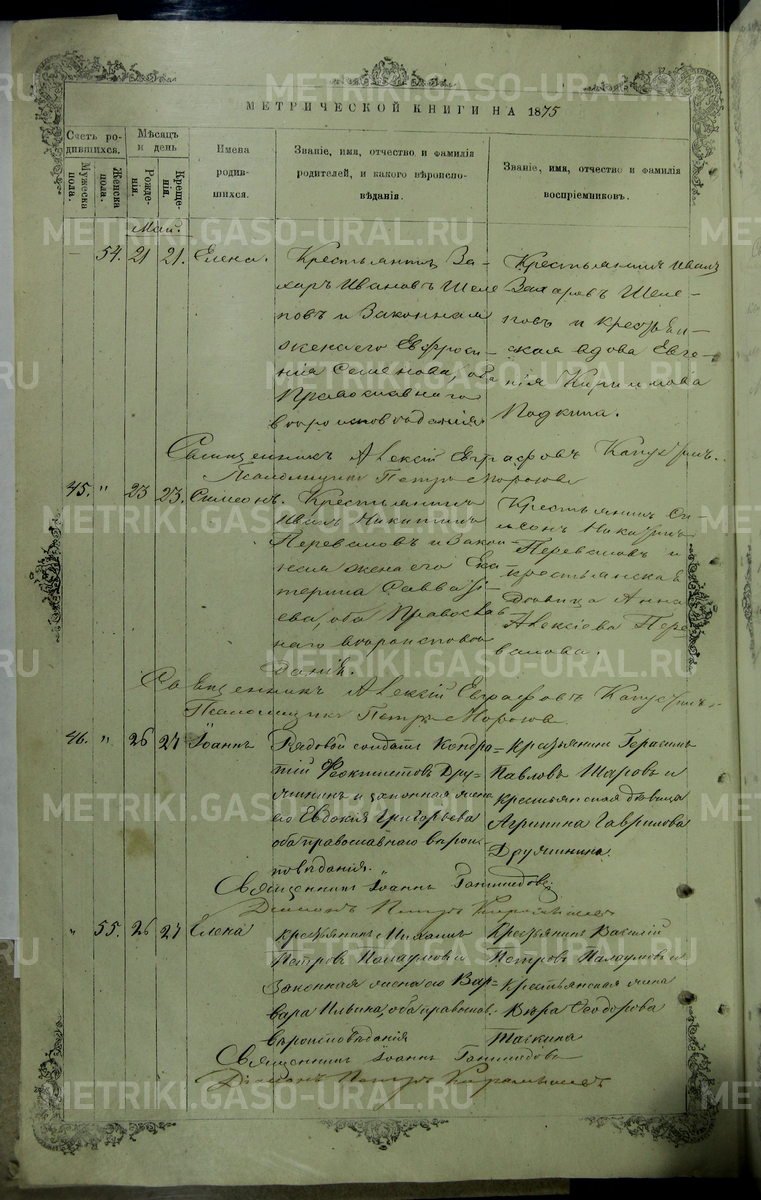 МЕТРИЧЕСКОЙ КНИГИ НА 1875
Счетъ родившихся.
Мужеска пола.
Женска пола.
Мѣсяцъ и день
Рожденія.
Крещенія.
Имена родившихся.
Званіе, имя, отчество и фамилія родителей, и какого вѣроисповѣданія.
Званіе, имя, отчество и фамилія воспріемниковъ.
Май.
54. 21 21. Елена.
Крестьянинъ За-
харъ Ивановъ Шеле
повъ и Законная
жена его Евфроси-
нія Семенова, оба
Православнаго
вѣроисповѣданія
Крестьянинъ Иванъ
Захаровъ Шеле-
повъ и крестьян-
ская вдова Евге-
нія
Священникъ Алексій Евграфовъ
Псаломщикъ Петръ Морозовъ
45. " 23 23. Симеонъ.
Крестьянинъ
Иванъ Никитинъ
Переваловъ и Закон-
ная жена его Ека
терина Савватi-
ева, оба Православ-
наго вѣроисповѣ
данія.
Крестьянинъ Си-
меонъ Никитинъ
Переваловъ и
крестьянская
Дѣвица Анна
Алексіева Пере
валова.
Священникъ Алексій Евграфовъ
Псаломщикъ Петръ Морозовъ
46. " 26 27 Іоаннъ
Рядовой солдатъ Кондра
тій Феоктистовъ Дру-
жининъ и законная жена
его Евдокія Григорьева
оба православнаго вѣроис
повѣданія.
Крестьянинъ Герасимъ
Павловъ Шаровъ и
крестьянская дѣвица
Агрипина Гаврилова
Дружинина.
Священникъ Іоаннъ
Діаконъ Петръ
" 55. 26 27 Елена
Крестьянинъ Михаилъ
Петровъ и
Законная жена его Вар-
вара Ильина, оба православ.
вѣроисповѣданія
Крестьянинъ Василій
Петровъ и
Крестьянская жена
Вѣра Ѳеодорова
Священникъ Іоаннъ
Діаконъ Петръ
METRIKI.GASO-URAL.RU